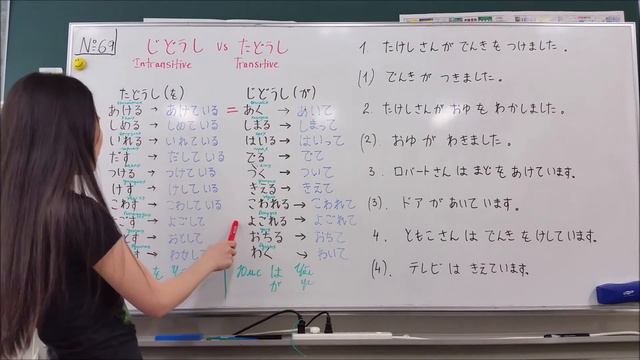 №69
じどうし vs たどうし
Intransitive Transitive
たどうし (を)
あける → あけている
しめる → しめている
いれる → いれている
だす → だしている
つける → つけている
けす → けしている
こわす → こわしている
ごす → よごして
す → おとして
す → わかして
を
じどうし (が)
= あく → あいて
しまる → しまって
はいる → はいって
でる → でて
つく → ついて
きえる → きえて
こわれる → こわれて
よごれる → よごれて
おちる → おちて
わく → わいて
は
が
1. たけしさんが でんきを つけました。
(1) でんきが つきました。
2. たけしさんが おゆを わかしました。
(2). おゆが わきました。
3. ロバートさんは まどを あけています。
(3). ドアが あいています。
4. ともこさんは でんきを けしています。
(4). テレビは きえています。